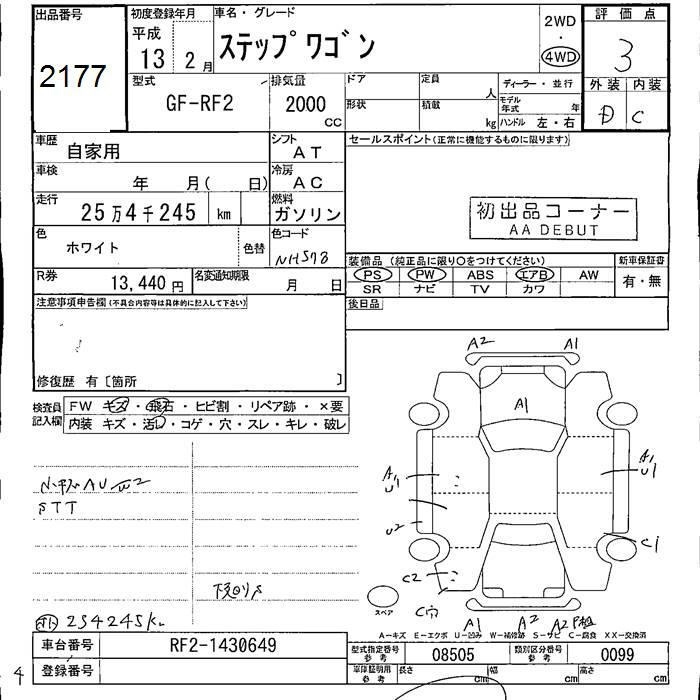 出品番号
2177
初度登録年月
平成
13 2月
車名・グレード
ステップワゴン
2WD
・
4WD
評価点
3
外装 内装
D C
型式
GF-RF2
排気量
2000
CC
ドア 定員
人
形状 積載
kg
ディーラー・並行
モデル年式 年
ハンドル 左・右
車歴
自家用
シフト
AT
車検
年 月( 日)
冷房
AC
走行
25万4千245 km
燃料
ガソリン
色
ホワイト
色替
色コード
NH578
R券
13,440円
名変通知期限
月 日
セールスポイント(正常に機能するものに限ります)
初出品コーナー
AA DEBUT
装備品(純正品に限り○をつけてください)
新車保証書
PS PW ABS エアB AW
SR ナビ TV カワ
有・無
後日品
注意事項申告欄(不具合内容等は具体的に記入して下さい)
修復歴 有〔箇所 〕
検査員記入欄
FW キズ・飛石・ヒビ割・リペア跡・×要
内装 キズ・汚レ・コゲ・穴・スレ・キレ・破レ
254245K
A2 A1
A1
A1
U1
A1
U1
U2
C1
C2
C穴
スペア
A1 A2 A2
A-キズ E-エクボ U-凹み W-補修跡 S-サビ C-腐食 XX-交換済
車台番号
RF2-1430649
型式指定番号
参考
08505
類別区分番号
参考
0099
登録番号
車庫証明用
参考
長さ cm 幅 cm 高さ cm
4